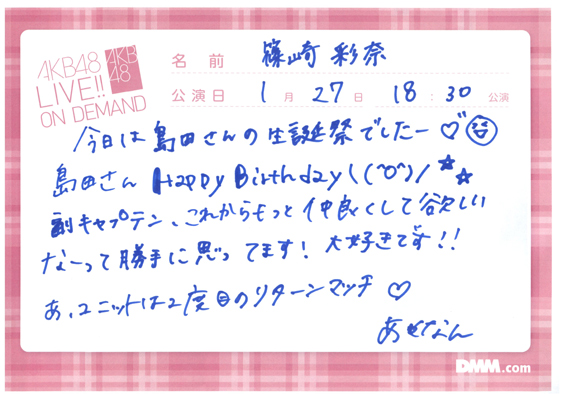 AKB48
LIVE!!
ON DEMAND
AKB
48
名前 篠崎 彩奈
公演日 1月27日 18:30公演
今日は島田さんの生誕祭でしたー♡
島田さん Happy Birthday\(^o^)/★☆
副キャプテン、これからもっと仲良くして欲しい
なーって勝手に思ってます! 大好きです!!
あ、ユニットは2度目のリターンマッチ♡
あやなん
DMM.com